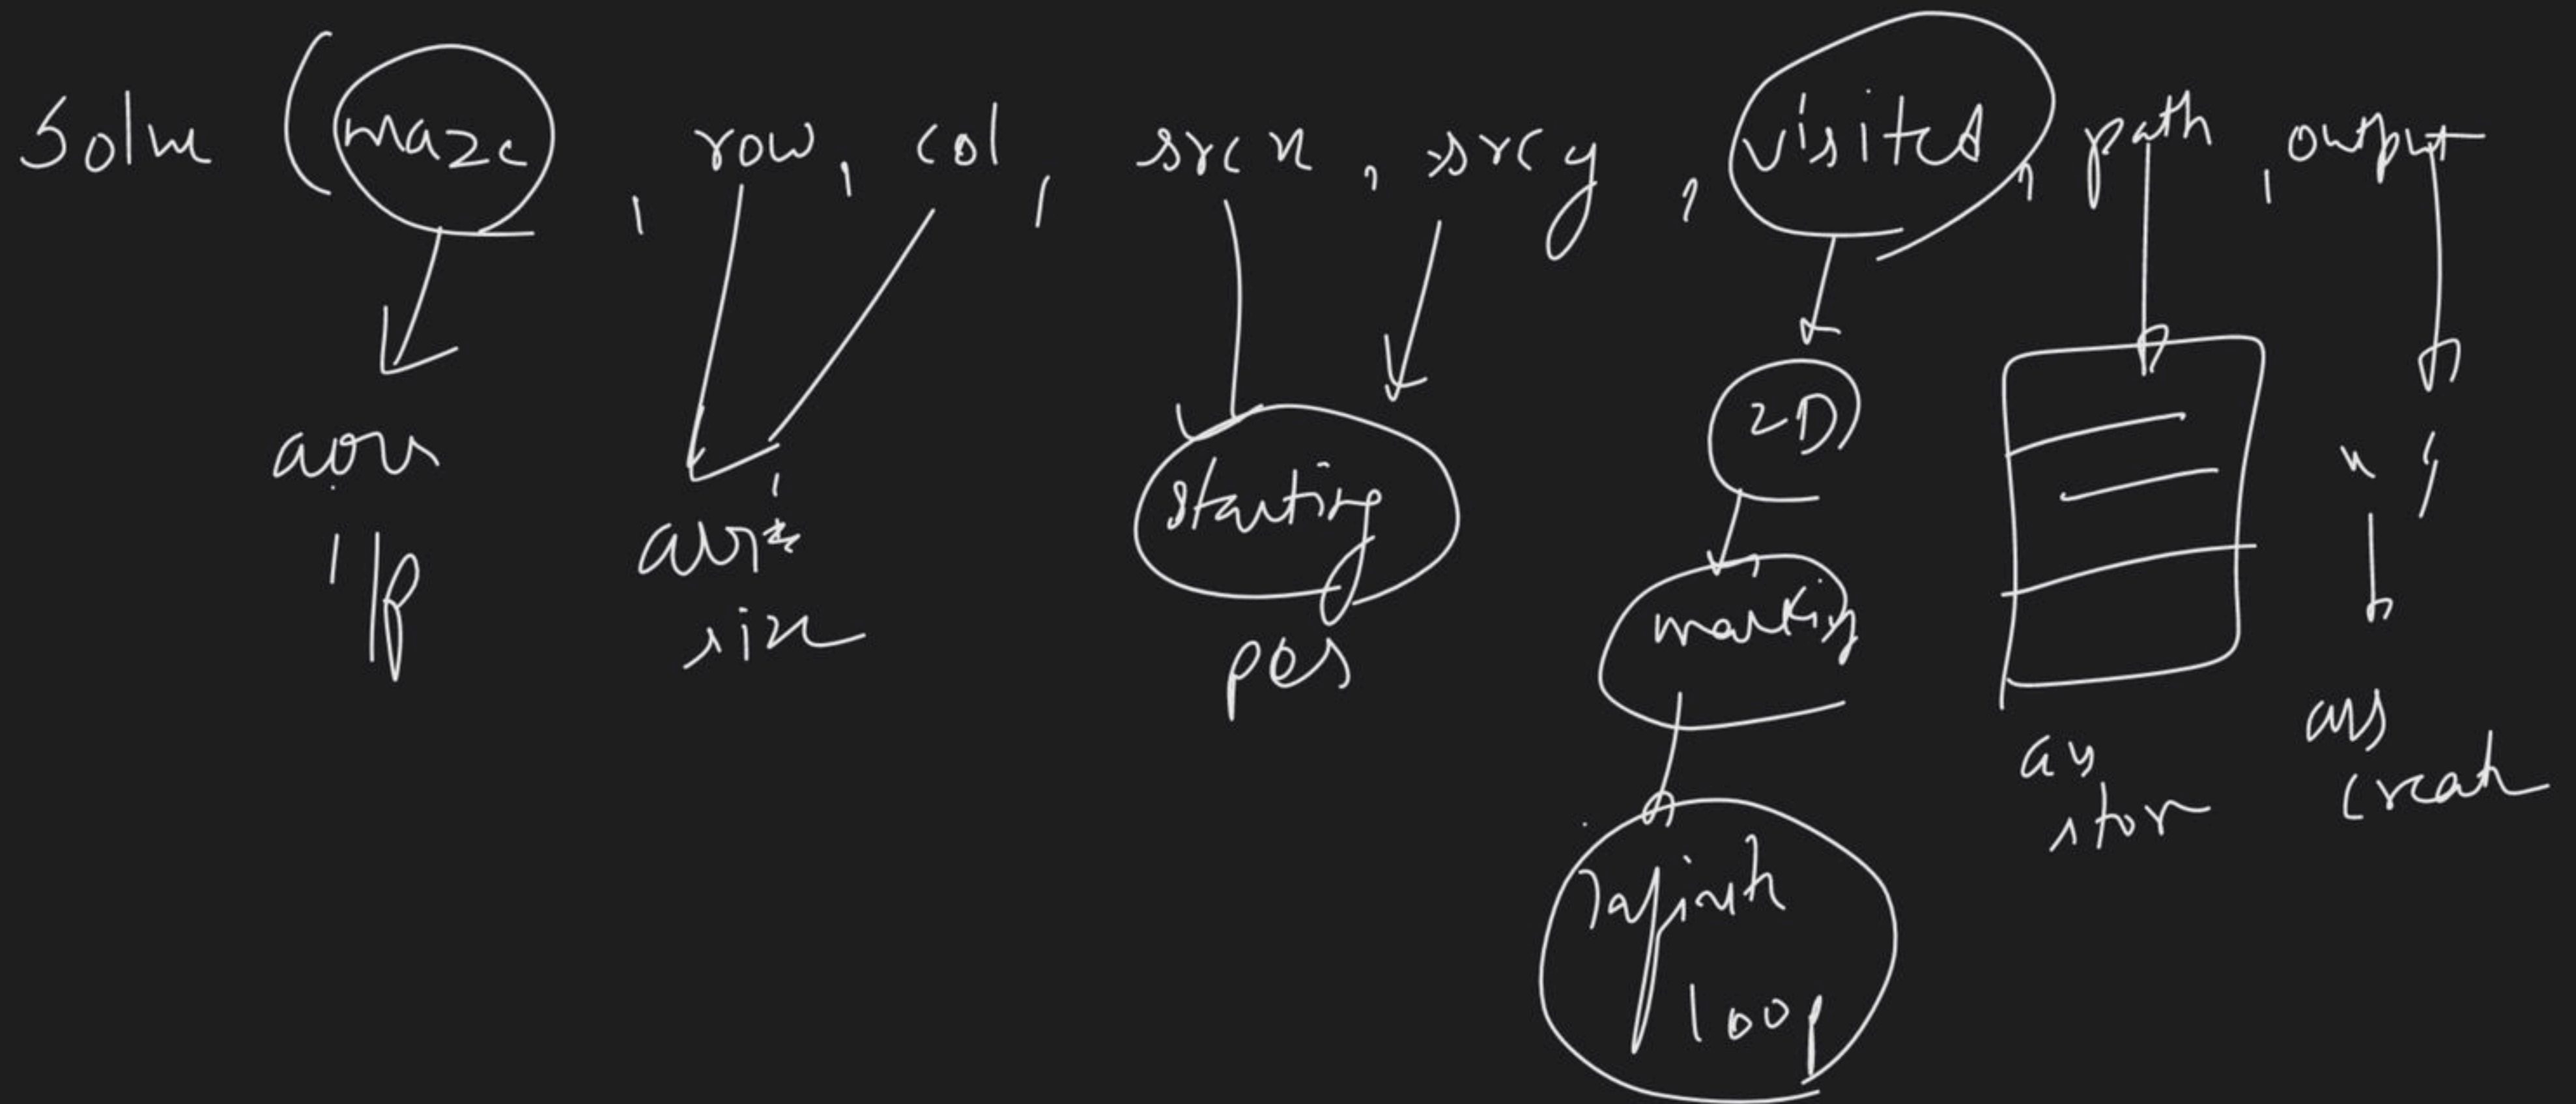 solve (maze, row, col, srcx, srcy, visited, path, output
arr
i/p
arr
size
starting
pos
2D
marking
infinite
loop
ans
store
" "
ans
create